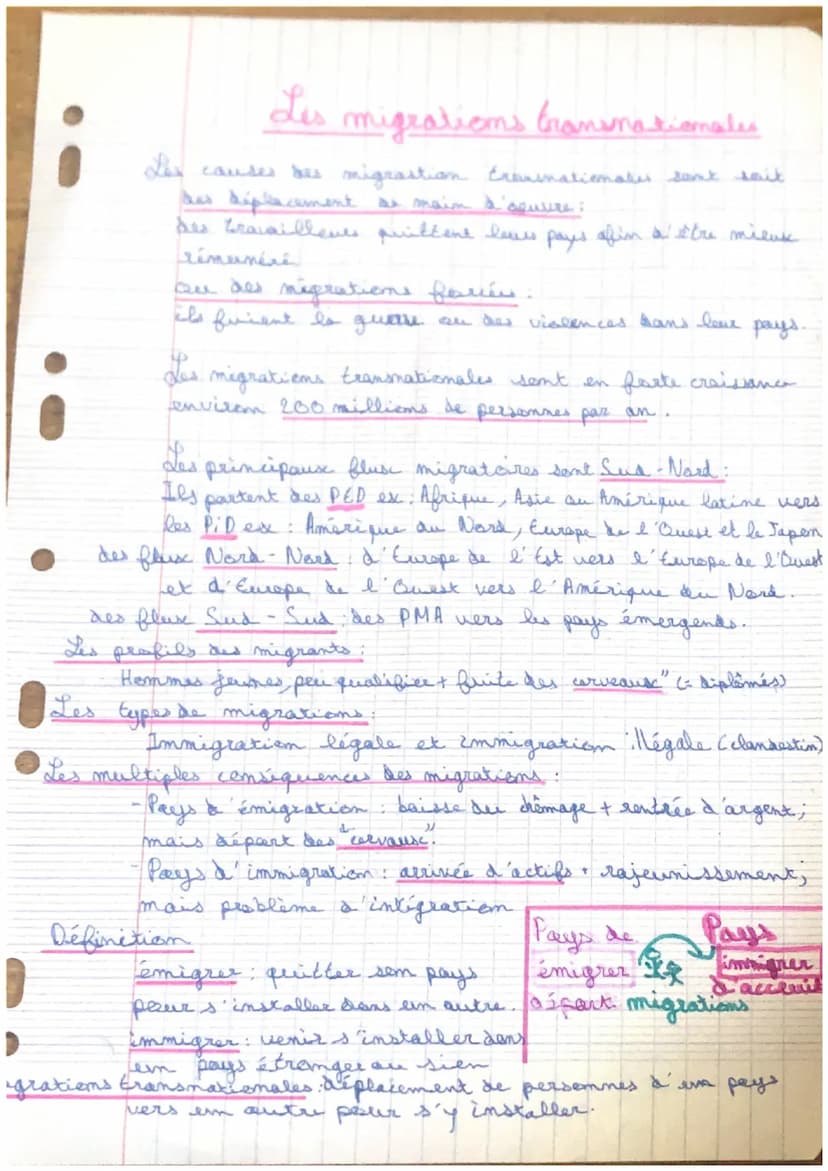 Les migrations transnationales
Les causes des migrastion transnationales sont soit
des déplacement de main d'oeuvre :
des travailleurs quittent leurs pays afin d'être mieux
rémunéré
ou des migrations forcées :
ils fuient la guerre ou des violences dans leur pays.
Les migrations transnationales sont en forte croissance
environ 200 millions de personnes par an.
Les principaux flux migratoires sont Sud-Nord :
Ils partent des PED ex : Afrique, Asie ou Amérique latine vers
les PiD ex : Amérique du Nord, Europe de l'Ouest et le Japon
des flux Nord-Nord : d'Europe de l'Est vers l'Europe de l'Ouest
et d'Europe de l'Ouest vers l'Amérique du Nord.
des flux Sud-Sud : des PMA vers les pays émergends.
Les profils des migrants :
Hommes jeunes, peu qualifier + fuite des cerveaux" (= diplômés)
Les types de migrations :
Immigration légale et immigration illégale (clandestin)
Les multiples conséquences des migrations :
- Pays d'émigration : baisse du chômage + rentrée d'argent ;
mais départ des "cerveaux".
- Pays d'immigration : arrivée d'actifs + rajeunissement ;
mais problème d'intégration
Définition
émigrer : quitter son pays
pour s'installer dans un autre.
immigrer : venir s'installer dans
un pays étranger au sien
grations transnationales : déplacement de personnes d'un pays
vers un autre pour s'y installer.
Pays de
émigrer
départ
migrations
Pays
immigrer
d'acceuil